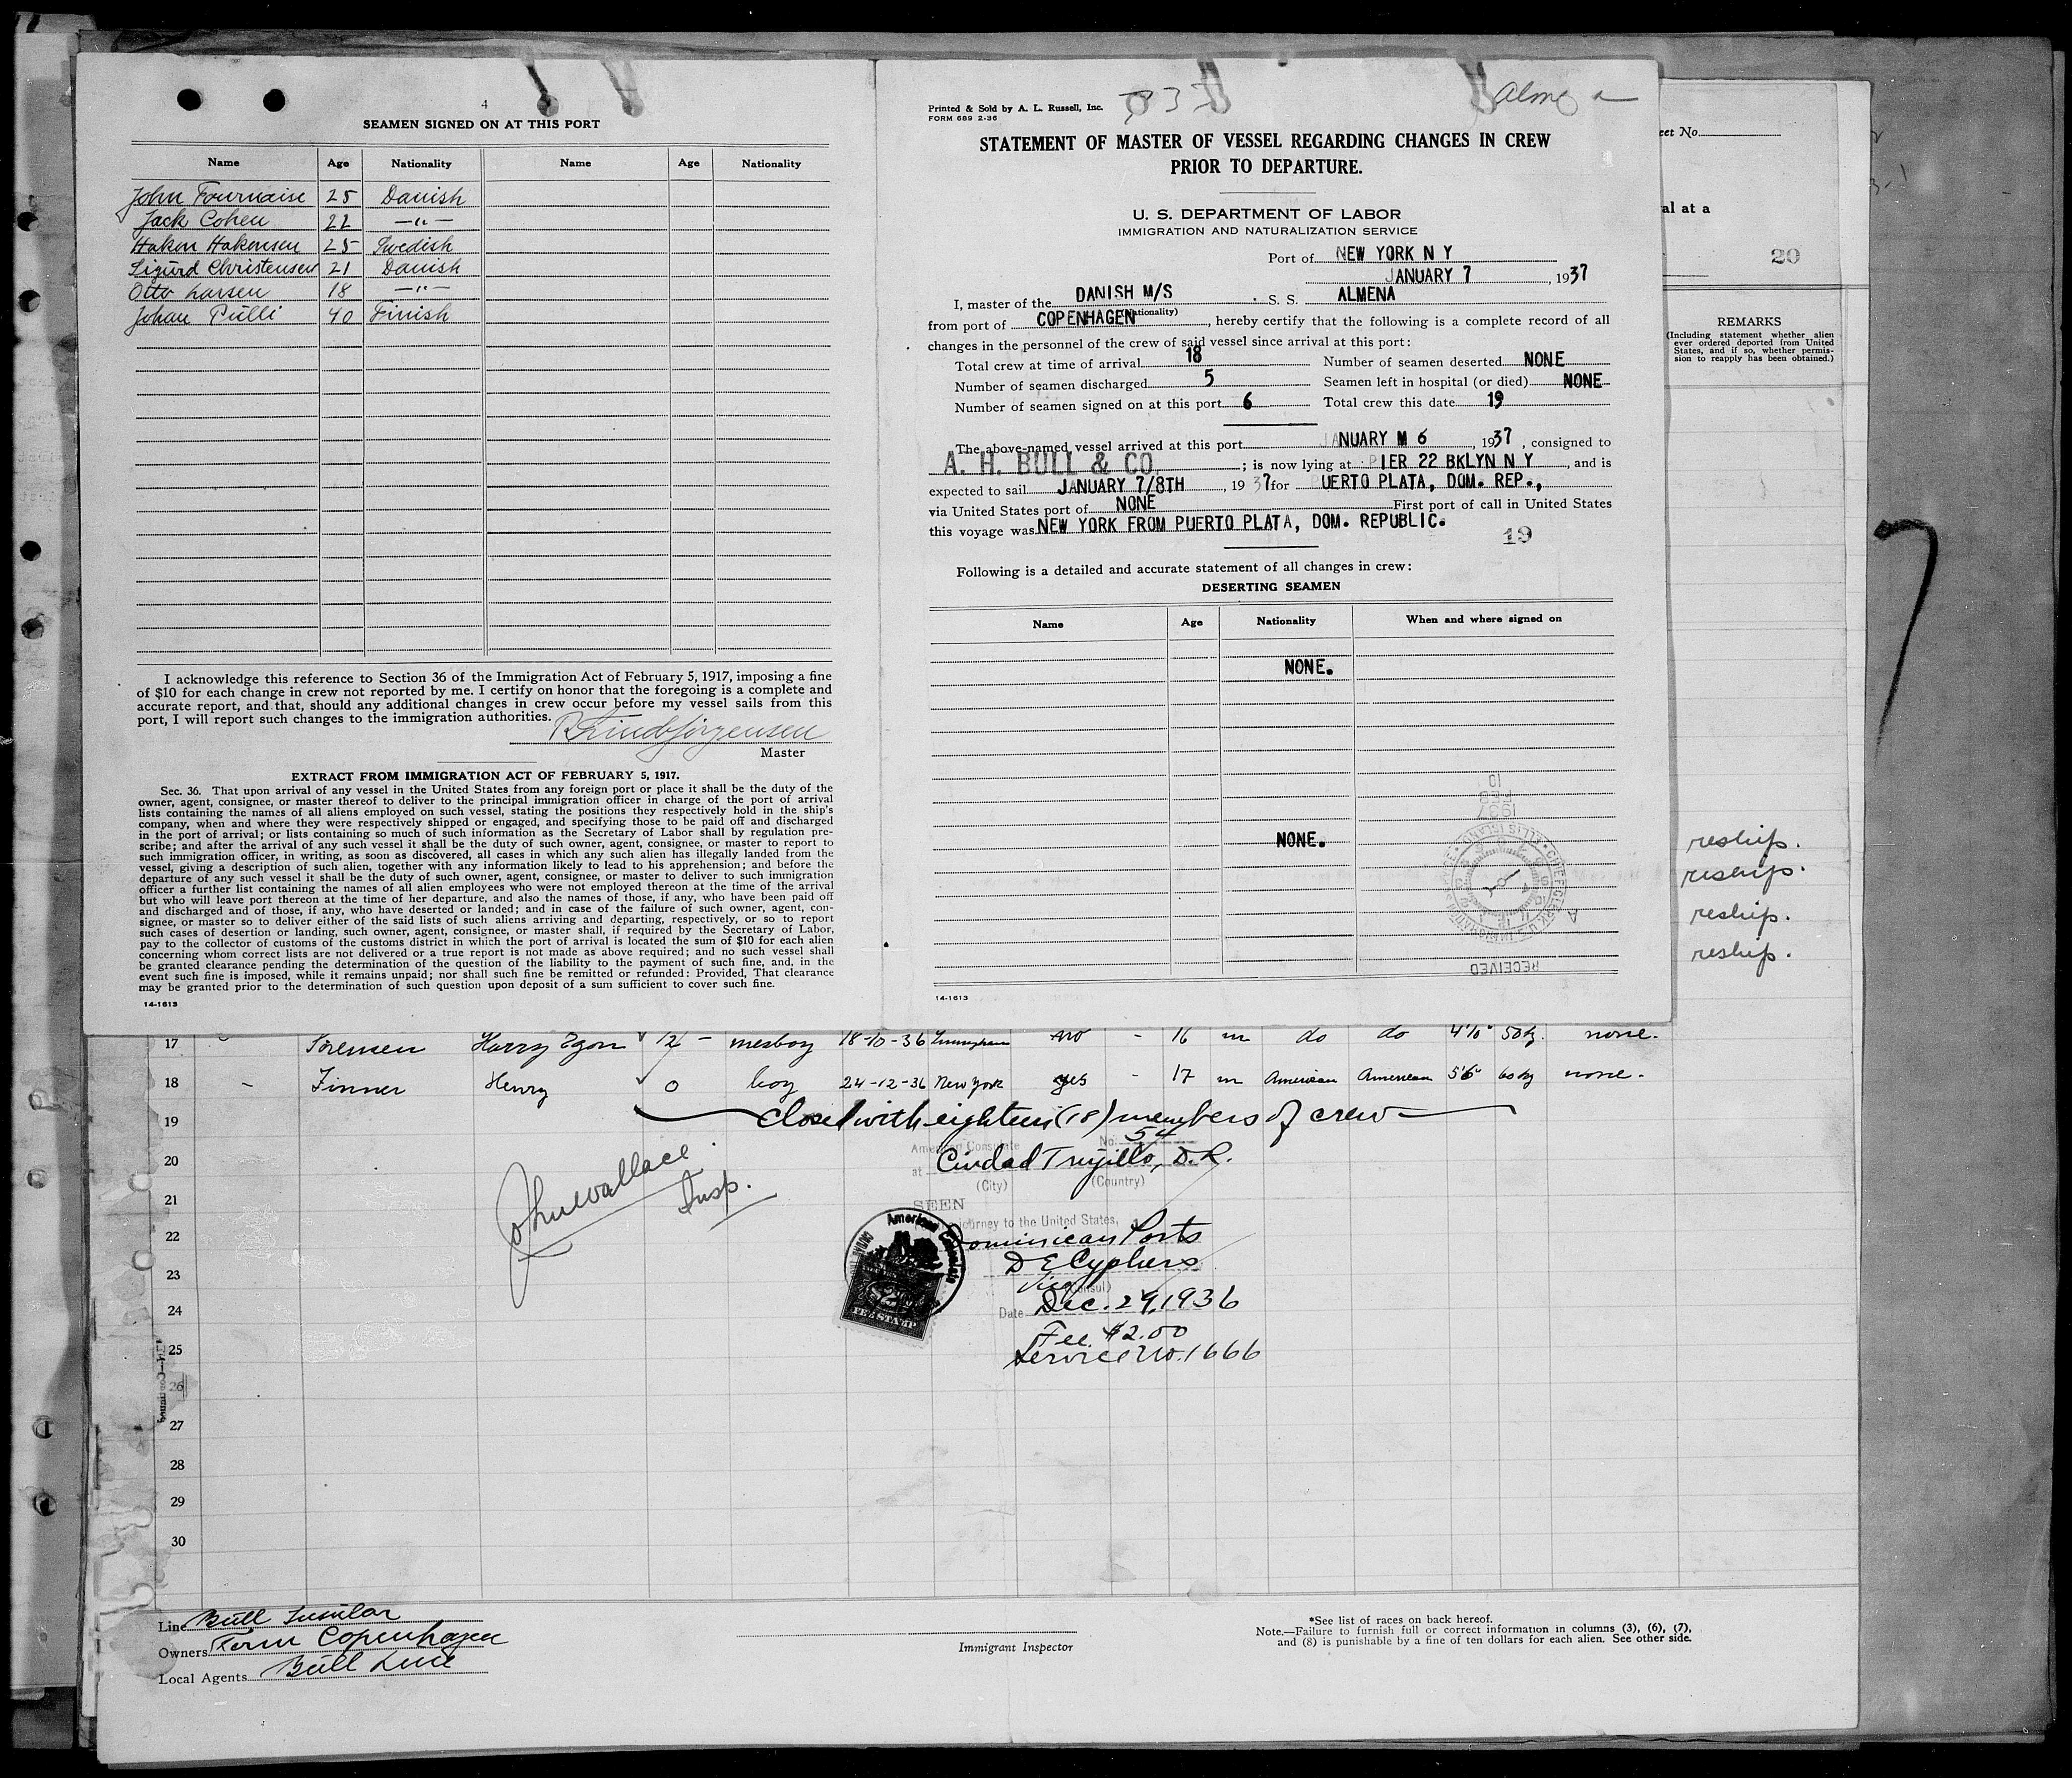 4
SEAMEN SIGNED ON AT THIS PORT
Name Age Nationality Name Age Nationality
John Fournaise 25 Danish
Jack Cohen 22 —"—
Hakon Hakonsen 25 Swedish
Sigurd Christensen 21 Danish
Otto Larsen 18 —"—
Johan Pulli 40 Finish
I acknowledge this reference to Section 36 of the Immigration Act of February 5, 1917, imposing a fine
of $10 for each change in crew not reported by me. I certify on honor that the foregoing is a complete and
accurate report, and that, should any additional changes in crew occur before my vessel sails from this
port, I will report such changes to the immigration authorities.
Master
EXTRACT FROM IMMIGRATION ACT OF FEBRUARY 5, 1917.
Sec. 36. That upon arrival of any vessel in the United States from any foreign port or place it shall be the duty of the
owner, agent, consignee, or master thereof to deliver to the principal immigration officer in charge of the port of arrival
lists containing the names of all aliens employed on such vessel, stating the positions they respectively hold in the ship's
company, when and where they were respectively shipped or engaged, and specifying those to be paid off and discharged
in the port of arrival; or lists containing so much of such information as the Secretary of Labor shall by regulation pre-
scribe; and after the arrival of any such vessel it shall be the duty of such owner, agent, consignee, or master to report to
such immigration officer, in writing, as soon as discovered, all cases in which any such alien has illegally landed from the
vessel, giving a description of such alien, together with any information likely to lead to his apprehension; and before the
departure of any such vessel it shall be the duty of such owner, agent, consignee, or master to deliver to such immigration
officer a further list containing the names of all alien employees who were not employed thereon at the time of the arrival
but who will leave port thereon at the time of her departure, and also the names of those, if any, who have been paid off
and discharged and of those, if any, who have deserted or landed; and in case of the failure of such owner, agent, con-
signee, or master so to deliver either of the said lists of such aliens arriving and departing, respectively, or so to report
such cases of desertion or landing, such owner, agent, consignee, or master shall, if required by the Secretary of Labor,
pay to the collector of customs of the customs district in which the port of arrival is located the sum of $10 for each alien
concerning whom correct lists are not delivered or a true report is not made as above required; and no such vessel shall
be granted clearance pending the determination of the question of the liability to the payment of such fine, and, in the
event such fine is imposed, while it remains unpaid; nor shall such fine be remitted or refunded: Provided, That clearance
may be granted prior to the determination of such question upon deposit of a sum sufficient to cover such fine.
14-1613
Printed & Sold by A. L. Russell, Inc.
FORM 689 2-36
Almena
STATEMENT OF MASTER OF VESSEL REGARDING CHANGES IN CREW
PRIOR TO DEPARTURE.
U. S. DEPARTMENT OF LABOR
IMMIGRATION AND NATURALIZATION SERVICE
Port of NEW YORK N Y
JANUARY 7, 1937
I, master of the DANISH M/S S. S. ALMENA
(Nationality)
from port of COPENHAGEN, hereby certify that the following is a complete record of all
changes in the personnel of the crew of said vessel since arrival at this port:
Total crew at time of arrival 18 Number of seamen deserted NONE
Number of seamen discharged 5 Seamen left in hospital (or died) NONE
Number of seamen signed on at this port 6 Total crew this date 19
The above-named vessel arrived at this port JANUARY M 6, 1937, consigned to
A. H. BULL & CO. ; is now lying at PIER 22 BKLYN N Y, and is
expected to sail JANUARY 7/8TH, 1937 for PUERTO PLATA, DOM. REP.,
via United States port of NONE First port of call in United States
this voyage was NEW YORK FROM PUERTO PLATA, DOM. REPUBLIC.
19
Following is a detailed and accurate statement of all changes in crew:
DESERTING SEAMEN
Name Age Nationality When and where signed on
NONE.
NONE.
10
FEB
1937
RECEIVED
14-1613
eet No.
al at a
20
REMARKS
(Including statement whether alien
ever ordered deported from United
States, and if so, whether permis-
sion to reapply has been obtained.)
reship.
reship.
reship.
reship.
17 Sorensen Harry Egon 12 - mesboy 18-10-36 no - 16 m do do 4'10" 50 kg. none.
18 - Finner Henry 0 boy 24-12-36 New York yes - 17 m American American 5'6" 60 kg none.
19 closed with eighteen (18) members of crew
American Consulate No. 54
20 at Ciudad Trujillo, D.R.
(City) (Country)
John Wallace
Insp.
21
SEEN
journey to the United States,
22 Dominican Ports
23 D E Cyphers
Vice (Consul)
24 Date Dec. 29, 1936
Fee $2.00
25 Service No. 1666
American Consulate
FEE STAMP
26
27
28
29
30
Line Bull Insular
Owners Torm Copenhagen
Local Agents Bull Line
Immigrant Inspector
*See list of races on back hereof.
Note.—Failure to furnish full or correct information in columns (3), (6), (7),
and (8) is punishable by a fine of ten dollars for each alien. See other side.